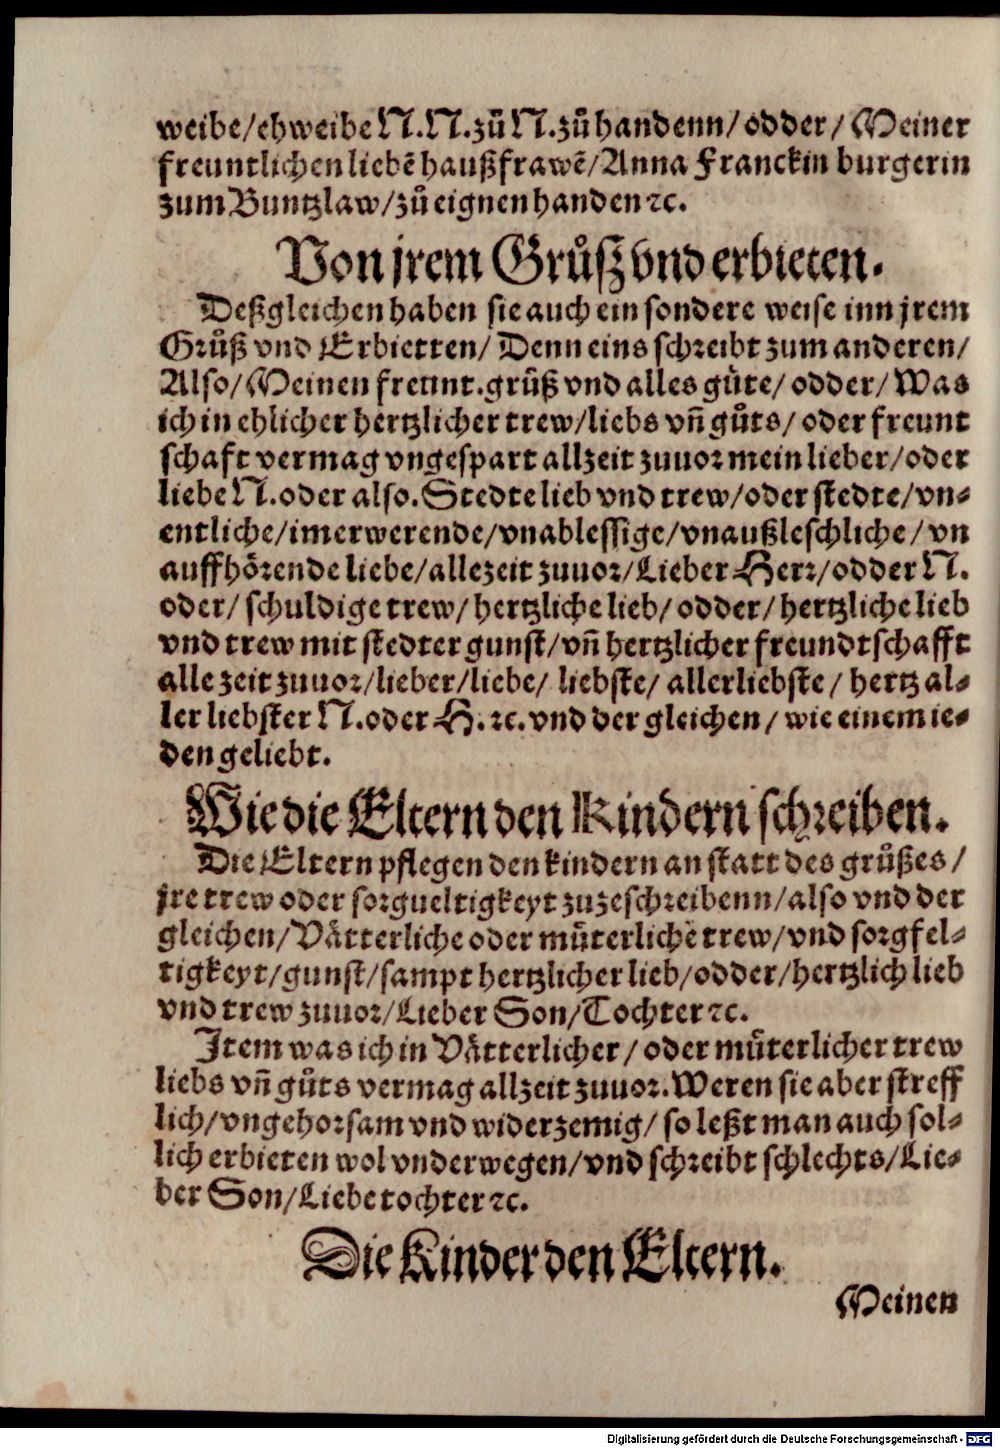 weibe/ehweibe N.N.zů N.zů handenn/odder/Meiner
freuntlichen liebē haußfrawē/Anna Franckin burgerin
zum Buntzlaw/zů eignen handen ꝛc.
Von jrem Grůß vnd erbieten.
Deßgleichen haben sie auch ein sondere weise inn jrem
Grůß vnd Erbietten/Denn eins schreibt zum anderen/
Also/Meinen freunt.grůß vnd alles gůte/odder/Was
ich in ehlicher hertzlicher trew/liebs vñ gůts/oder freunt
schafft vermag vngespart allzeit zuuor mein lieber/oder
liebe N.oder also.Stedte lieb vnd trew/oder stedte/vn⸗
entliche/imerwerende/vnablessige/vnaußleschliche/vn
auffhörende liebe/allezeit zuuor/Lieber Herr/odder N.
oder/schuldige trew/hertzliche lieb/odder/hertzliche lieb
vnd trew mit stedter gunst/vñ hertzlicher freundtschafft
alle zeit zuuor/lieber/liebe/liebste/allerliebste/hertz al⸗
ler liebster N.oder H.ꝛc.vnd der gleichen/wie einem ie⸗
den geliebt.
Wie die Eltern den Kindern schreiben.
Die Eltern pflegen den kindern an statt des grůßes/
jre trew oder sorgueltigkeyt zuzeschreibenn/also vnd der
gleichen/Vätterliche oder můterliche trew/vnd sorgfel⸗
tigkeyt/gunst/sampt hertzlicher lieb/odder/hertzlich lieb
vnd trew zuuor/Lieber Son/Tochter ꝛc.
Item was ich in Vätterlicher/oder můterlicher trew
liebs vñ gůts vermag allzeit zuuor.Weren sie aber streff
lich/vngehorsam vnd widerzemig/so leßt man auch sol⸗
lich erbieten wol vnderwegen/vnd schreibt schlechts/Lie⸗
ber Son/Liebe tochter ꝛc.
Die Kinder den Eltern.
Meinen
Digitalisierung gefördert durch die Deutsche Forschungsgemeinschaft - DFG